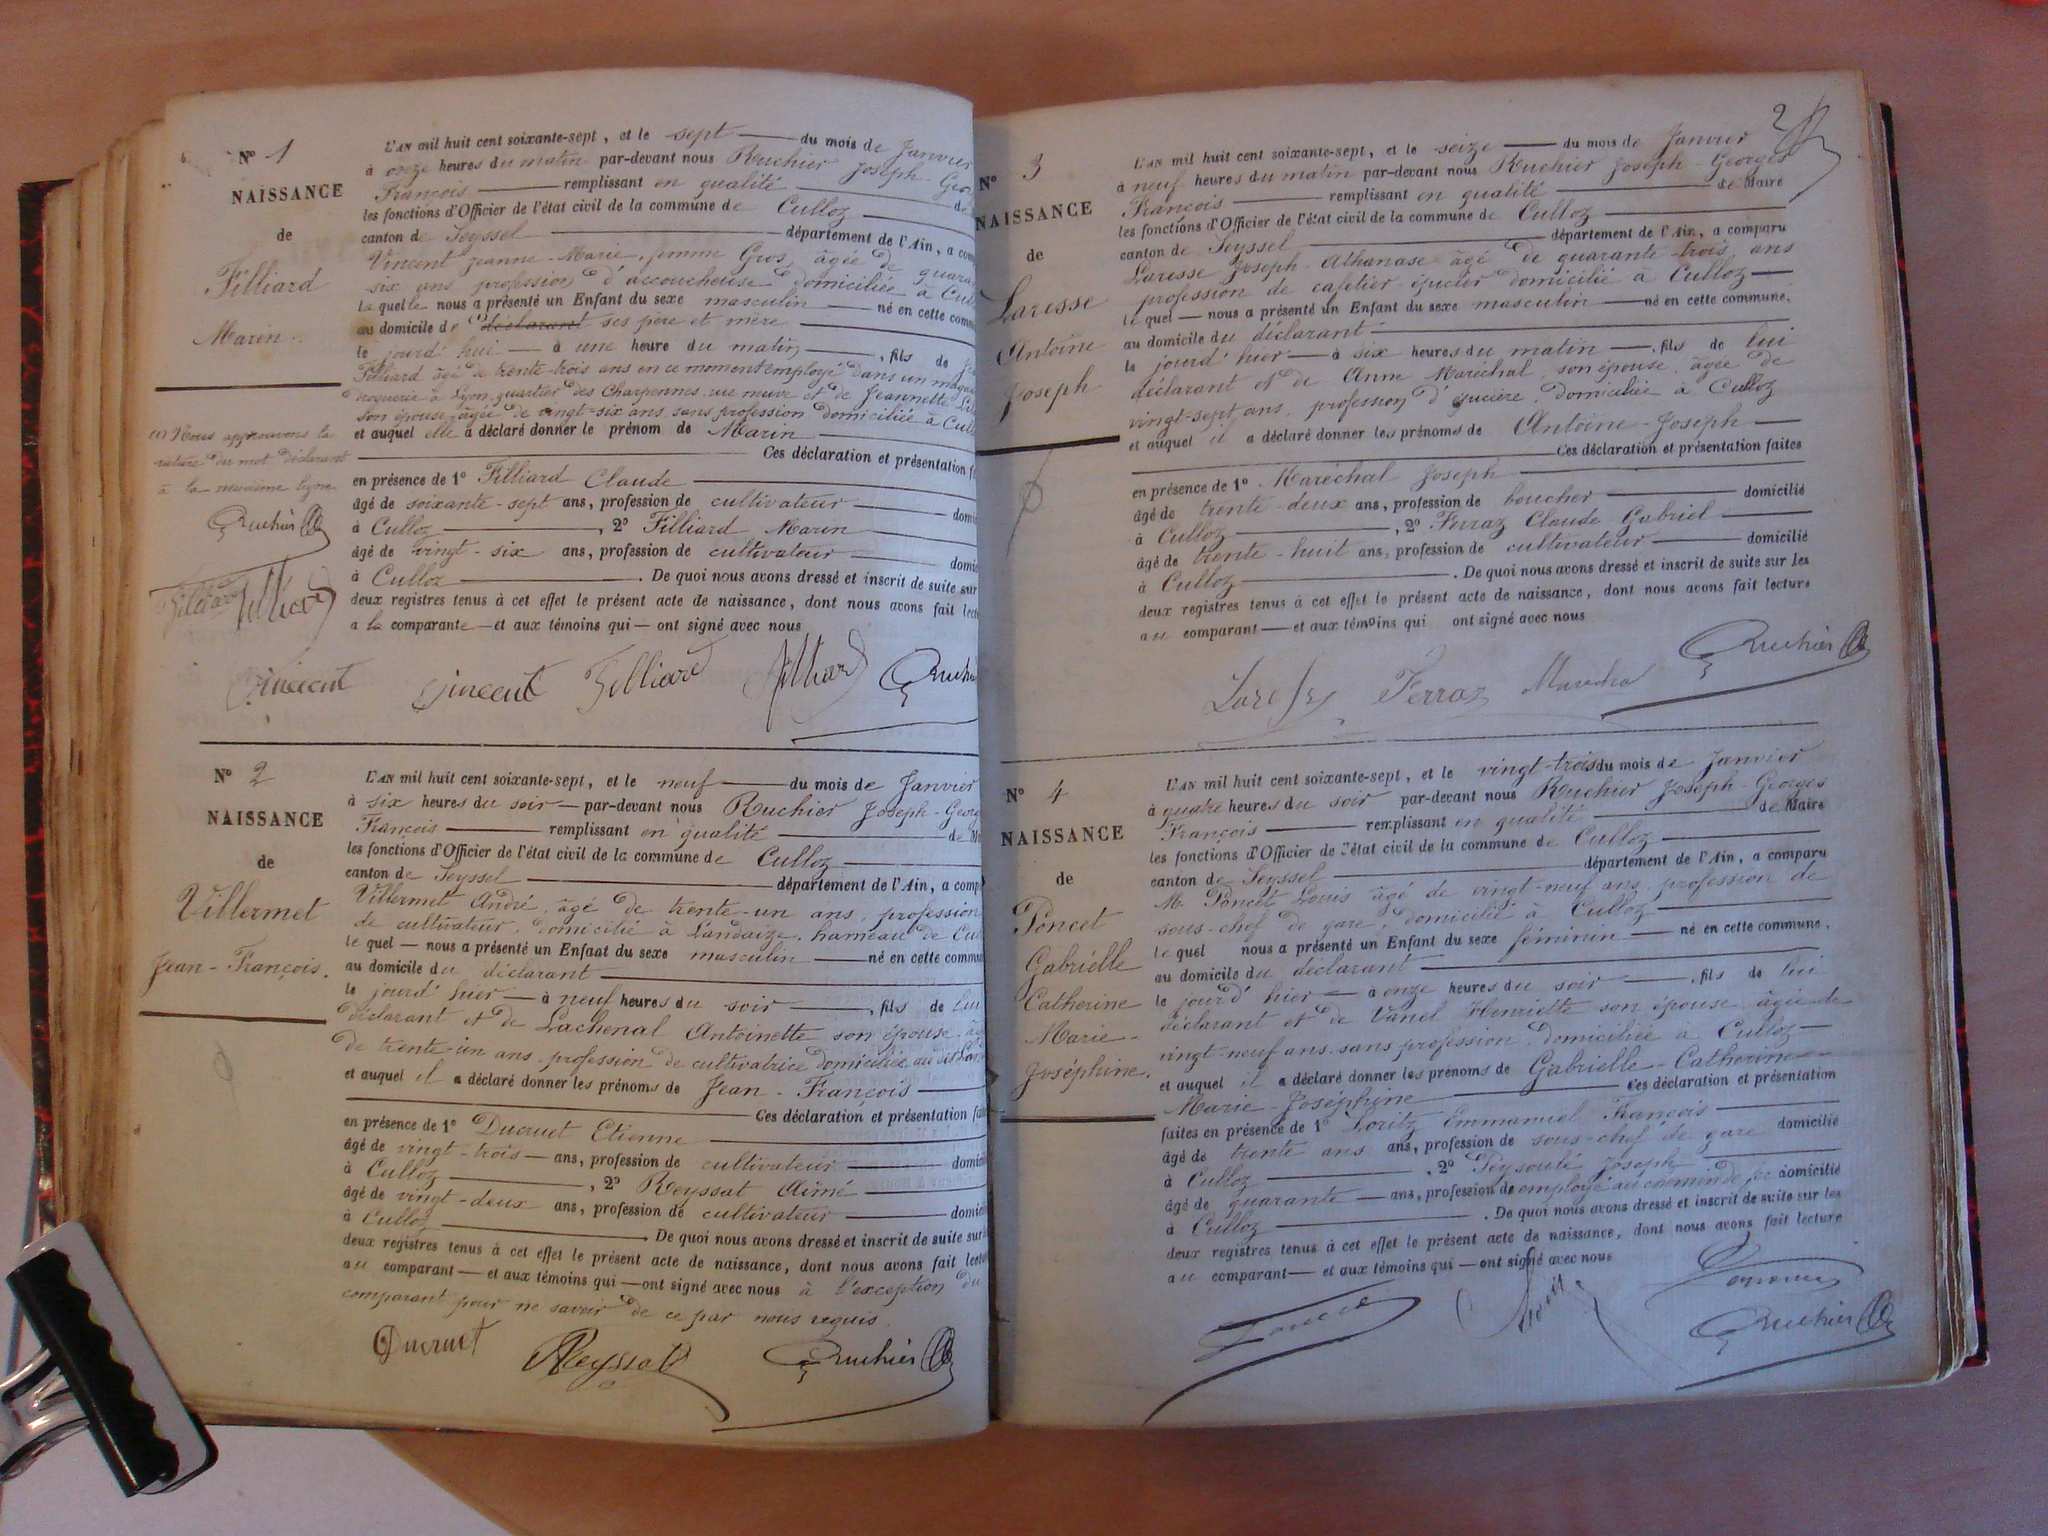 N° 1
NAISSANCE
de
Filliard
Marin.
(1) Nous approuvons la
rature du mot déclarant
à la neuvième ligne
Ruchier
Filliard Filliard
L'AN mil huit cent soixante-sept, et le sept du mois de Janvier
à onze heures du matin par-devant nous Ruchier Joseph-Geor
François remplissant en qualité de
les fonctions d'Officier de l'état civil de la commune de Culloz
canton de Seyssel département de l'Ain, a com
Vincent Jeanne-Marie, femme Gros, âgée de quara
six ans profession d'accoucheuse domiciliée à Cul
la quelle nous a présenté un Enfant du sexe masculin né en cette comm
au domicile de déclarant ses père et mère
le jourd'hui à une heure du matin, fils de
Filliard âgé de trente-trois ans en ce moment employé dans un maga
droguerie à Lyon, quartier des Charpennes, rue neuve et de Jeannette
son épouse, âgée de vingt-six ans, sans profession domiciliée à Cul
et auquel elle a déclaré donner le prénom de Marin
Ces déclaration et présentation f
en présence de 1° Filliard Claude
âgé de soixante-sept ans, profession de cultivateur domi
à Culloz, 2° Filliard Marin
âgé de vingt-six ans, profession de cultivateur domi
à Culloz. De quoi nous avons dressé et inscrit de suite sur
deux registres tenus à cet effet le présent acte de naissance, dont nous avons fait lect
a la comparante et aux témoins qui ont signé avec nous
Vincent Vincent Filliard Filliard Ruchi
N° 2
NAISSANCE
de
Villermet
Jean-François.
L'AN mil huit cent soixante-sept, et le neuf du mois de Janvier
à six heures du soir par-devant nous Ruchier Joseph-Georg
François remplissant en qualité de M
les fonctions d'Officier de l'état civil de la commune de Culloz
canton de Seyssel département de l'Ain, a comp
Villermet André, âgé de trente-un ans, profession
de cultivateur, domicilié à Landaize, hameau de Cul
le quel nous a présenté un Enfant du sexe masculin né en cette commu
au domicile du déclarant
le jourd'hier à neuf heures du soir, fils de lui
déclarant et de Lachenal Antoinette son épouse, âg
de trente-un ans, profession de cultivatrice domiciliée au dit Lan
et auquel il a déclaré donner les prénoms de Jean-François
Ces déclaration et présentation fai
en présence de 1° Ducruet Etienne
âgé de vingt-trois ans, profession de cultivateur domici
à Culloz, 2° Reyssat Aimé
âgé de vingt-deux ans, profession de cultivateur domici
à Culloz. De quoi nous avons dressé et inscrit de suite sur
deux registres tenus à cet effet le présent acte de naissance, dont nous avons fait lect
au comparant et aux témoins qui ont signé avec nous à l'exception du
comparant pour ne savoir de ce par nous requis.
Ducruet Reyssat Ruchier
2
N° 3
NAISSANCE
de
Laresse
Antoine
Joseph
L'AN mil huit cent soixante-sept, et le seize du mois de Janvier
à neuf heures du matin par-devant nous Ruchier Joseph-Georges
François remplissant en qualité de Maire
les fonctions d'Officier de l'état civil de la commune de Culloz
canton de Seyssel département de l'Ain, a comparu
Laresse Joseph-Athanase âgé de quarante-trois ans
profession de cafetier-épicier domicilié à Culloz
le quel nous a présenté un Enfant du sexe masculin né en cette commune.
au domicile du déclarant
le jourd'hier à six heures du matin, fils de lui
déclarant et de Anne Maréchal, son épouse, âgée de
vingt-sept ans, profession d'épicière, domiciliée à Culloz
et auquel il a déclaré donner les prénoms de Antoine-Joseph
Ces déclaration et présentation faites
en présence de 1° Maréchal Joseph
âgé de trente-deux ans, profession de boucher domicilié
à Culloz, 2° Furaz Claude Gabriel
âgé de trente-huit ans, profession de cultivateur domicilié
à Culloz. De quoi nous avons dressé et inscrit de suite sur les
deux registres tenus à cet effet le présent acte de naissance, dont nous avons fait lecture
au comparant et aux témoins qui ont signé avec nous
Ruchier
Laresse Ferraz Marechal
N° 4
NAISSANCE
de
Poncet
Gabriélle
Catherine
Marie-
Joséphine.
L'AN mil huit cent soixante-sept, et le vingt-trois du mois de Janvier
à quatre heures du soir par-devant nous Ruchier Joseph-Georges
François remplissant en qualité de Maire
les fonctions d'Officier de l'état civil de la commune de Culloz
canton de Seyssel département de l'Ain, a comparu
M. Poncet Louis âgé de vingt-neuf ans, profession de
sous-chef de gare, domicilié à Culloz
le quel nous a présenté un Enfant du sexe féminin né en cette commune.
au domicile du déclarant
le jourd'hier à onze heures du soir, fils de lui
déclarant et de Vanel Henriette son épouse âgée de
vingt-neuf ans, sans profession, domiciliée à Culloz
et auquel il a déclaré donner les prenoms de Gabrielle-Catherine-
Marie-Joséphine Ces déclaration et présentation
faites en présence de 1° Loritz Emmanuel François
âgé de trente ans ans, profession de sous-chef de gare domicilié
à Culloz, 2° Peysouté Joseph
âgé de quarante ans, profession de employé au chemin de fer domicilié
à Culloz. De quoi nous avons dressé et inscrit de suite sur les
deux registres tenus à cet effet le présent acte de naissance, dont nous avons fait lecture
au comparant et aux témoins qui ont signé avec nous
Poncet
Ruchier